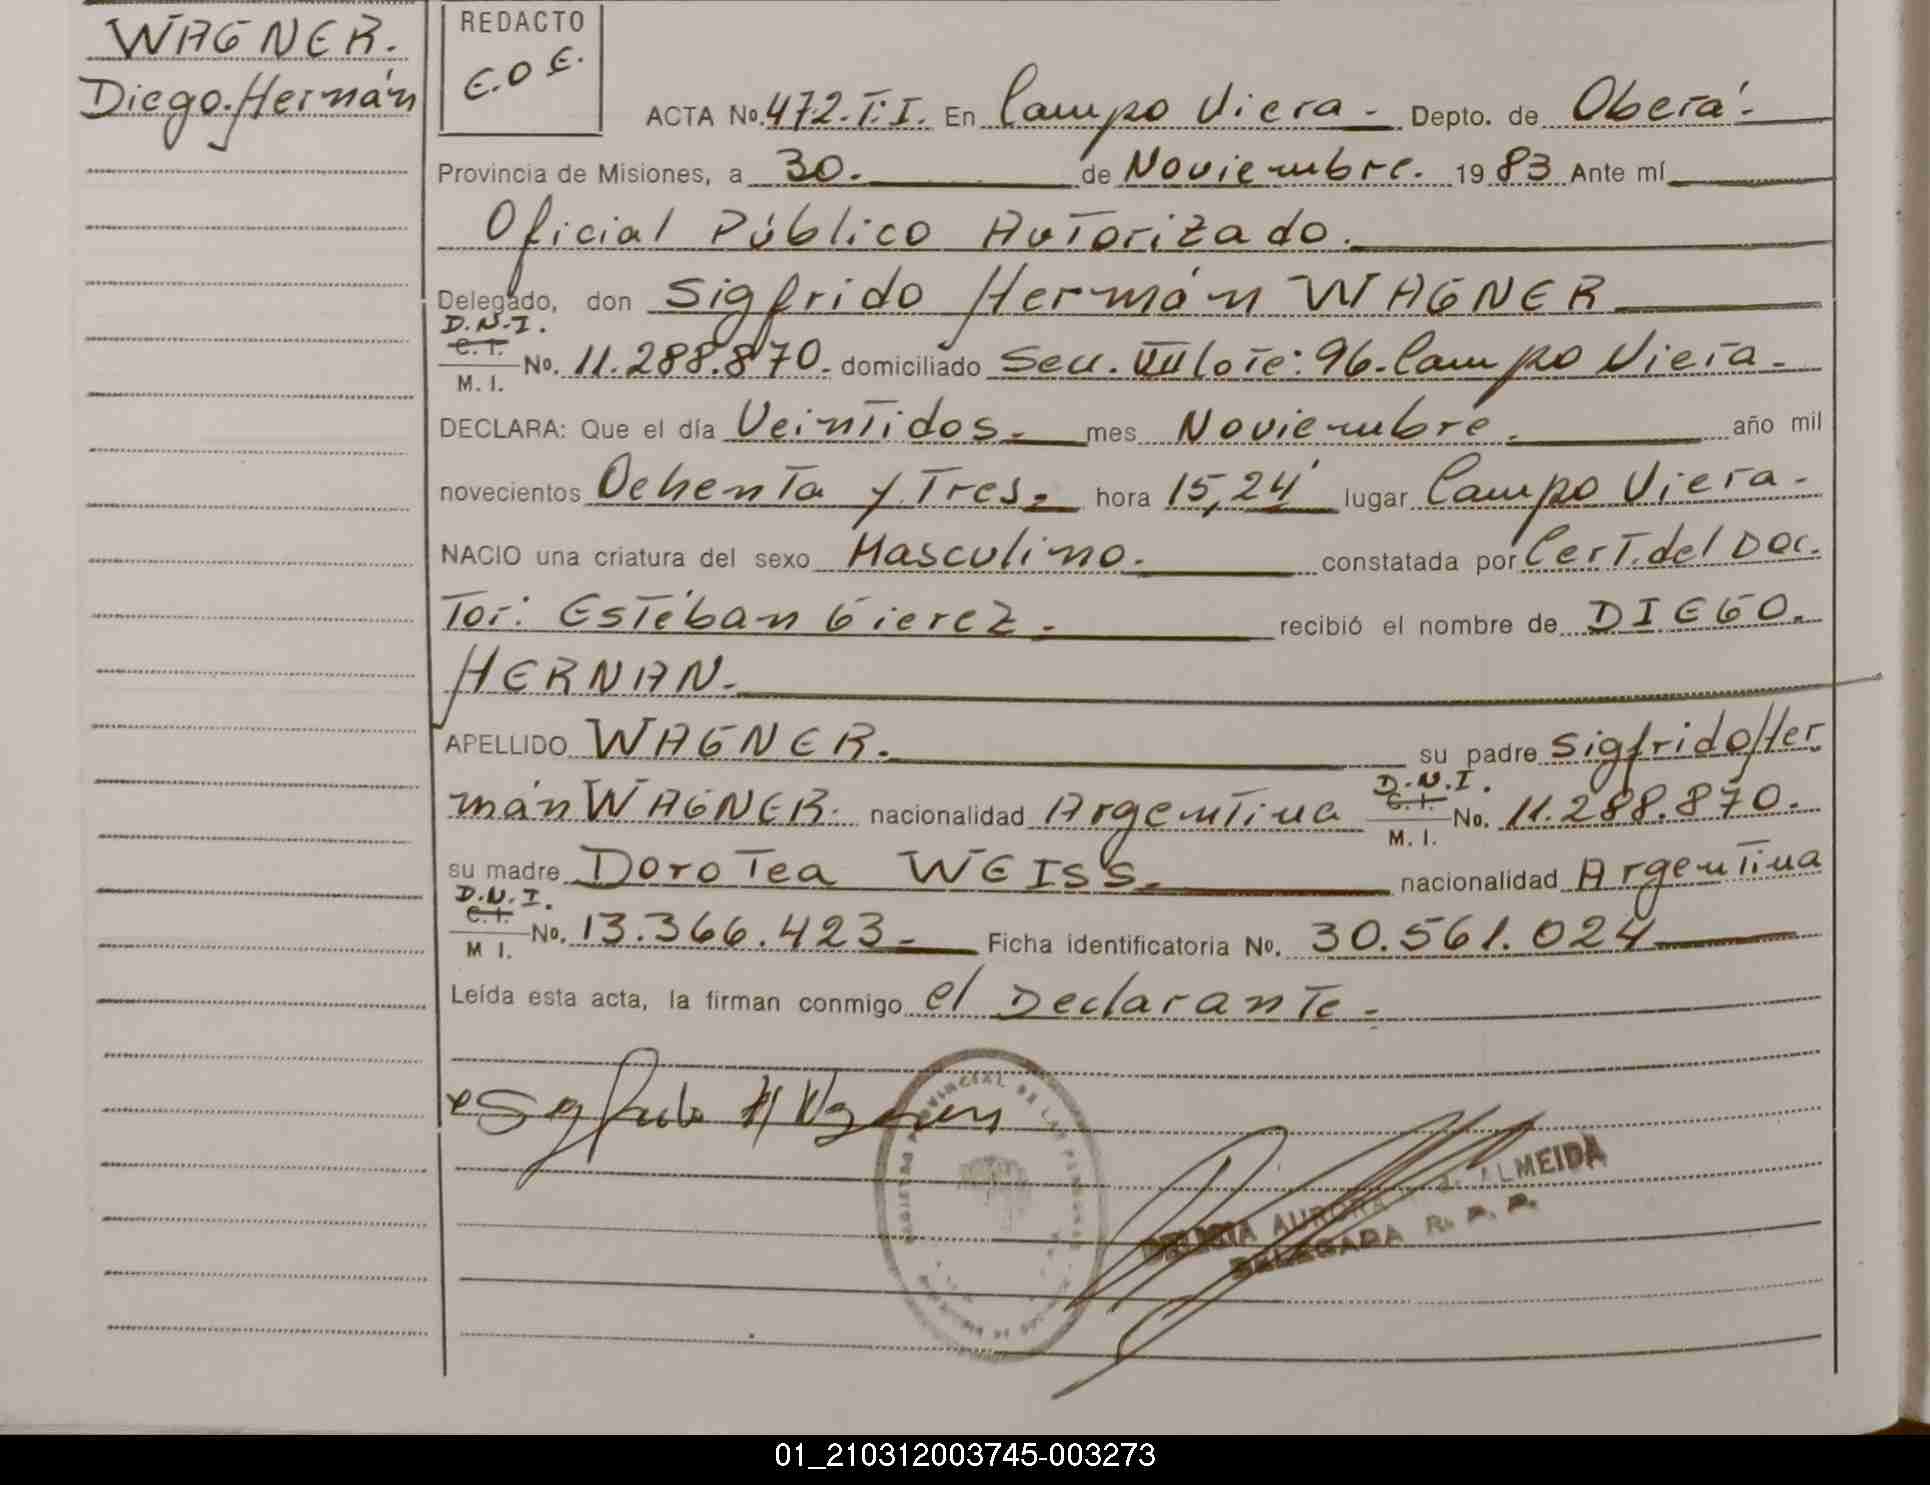 WAGNER.
Diego Hernán
REDACTO
E.O.E.
ACTA No. 472.T:I. En Campo Viera - Depto. de Oberá -
Provincia de Misiones, a 30. de Noviembre. 1983 Ante mí
Oficial Público Autorizado.
Delegado, don Sigfrido Hermán WAGNER
D.N.I.
C.I.
M. I.
No. 11.288.870. domiciliado Secc. VII lote: 96. Campo Viera -
DECLARA: Que el día Veintidos. mes Noviembre. año mil
novecientos Ochenta y Tres. hora 15,24' lugar Campo Viera -
NACIO una criatura del sexo Masculino. constatada por Cert. del Doc.
Tor: Estéban Gierez. recibió el nombre de DIEGO.
HERNAN.
APELLIDO WAGNER. su padre Sigfrido Her
mán WAGNER. nacionalidad Argentina D.N.I. C.I. M. I. No. 11.288.870.
su madre Dorotea WEISS. nacionalidad Argentina
D.N.I.
C.I.
M I.
No. 13.366.423 - Ficha identificatoria No. 30.561.024
Leída esta acta, la firman conmigo el Declarante -
Sigfrido H Wagner
PROVINCIAL DE LAS PERSONAS
AURORA ALMEIDA
DELEGADA R. P. P.
01_210312003745-003273